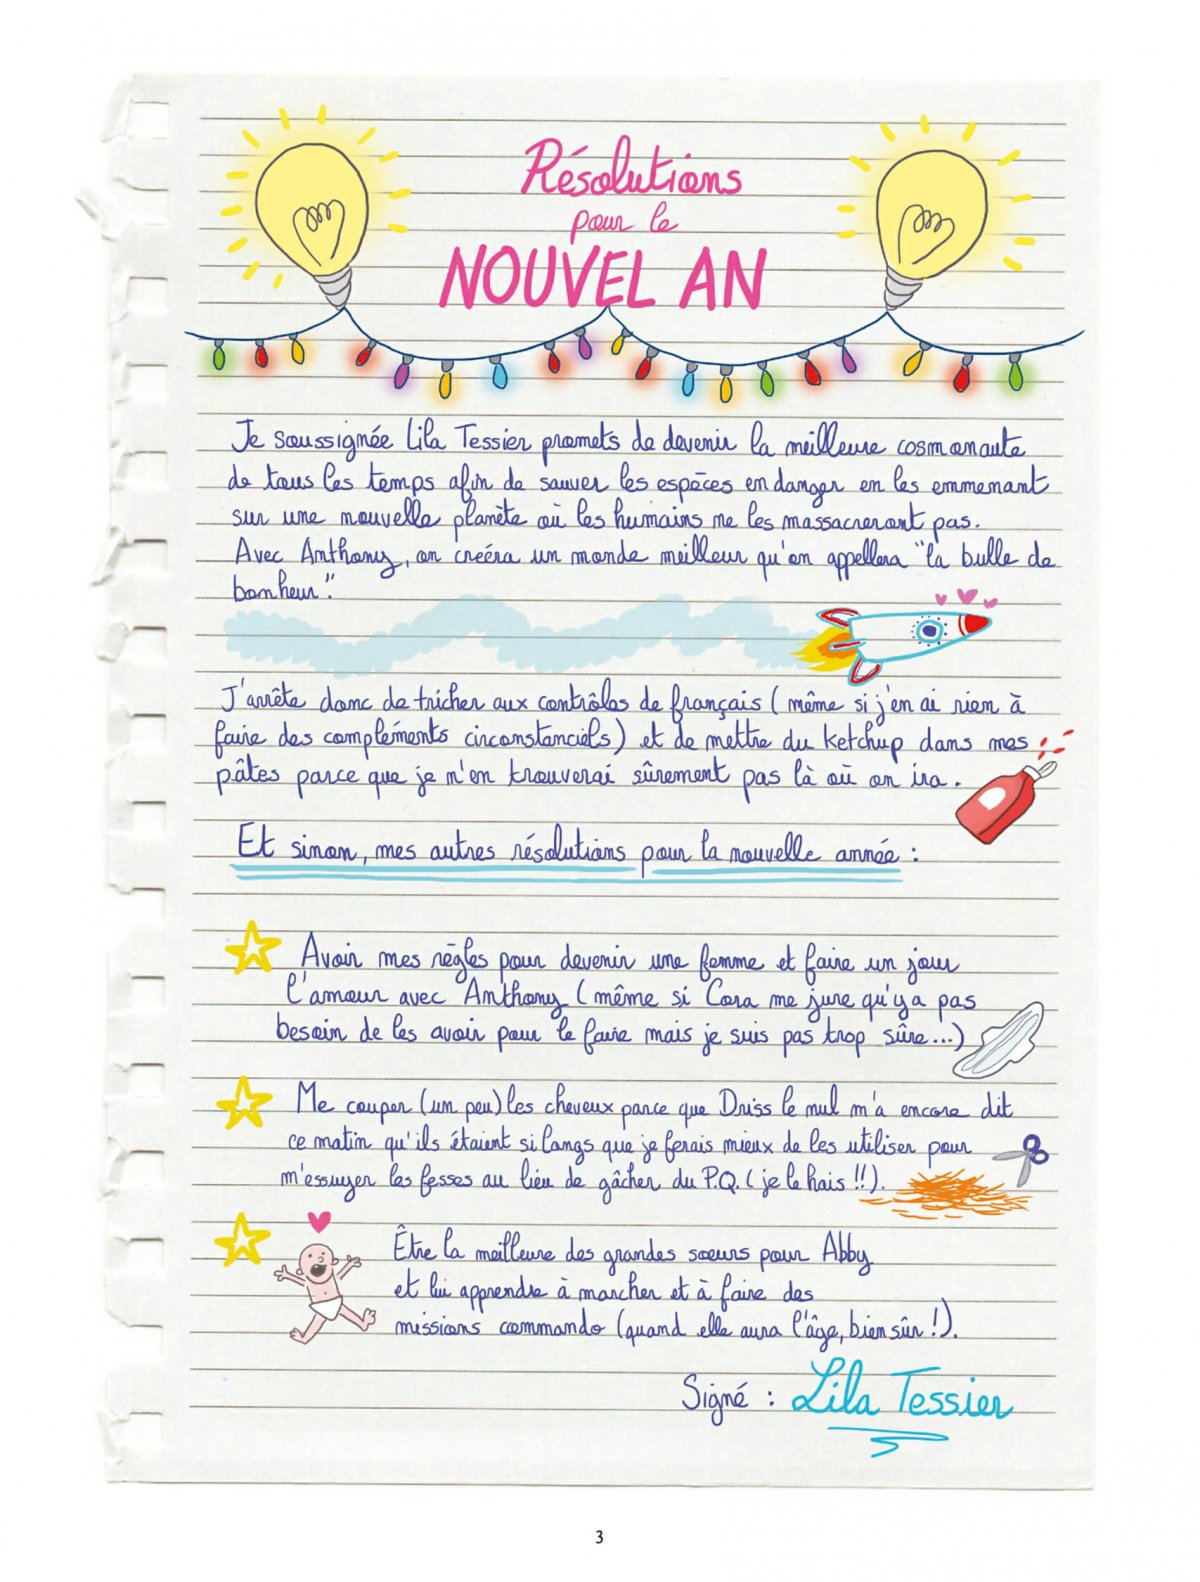 Résolutions
pour le
NOUVEL AN
Je soussignée Lila Tessier promets de devenir la meilleure cosmonaute
de tous les temps afin de sauver les espèces en danger en les emmenant
sur une nouvelle planète où les humains ne les massacreront pas.
Avec Anthony, on créera un monde meilleur qu'on appellera "la bulle de
bonheur".
J'arrête donc de tricher aux contrôles de français (même si j'en ai rien à
faire des compléments circonstanciels) et de mettre du ketchup dans mes
pâtes parce que je n'en trouverai sûrement pas là où on ira.
Et sinon, mes autres résolutions pour la nouvelle année :
Avoir mes règles pour devenir une femme et faire un jour
l'amour avec Anthony (même si Cora me jure qu'y a pas
besoin de les avoir pour le faire mais je suis pas trop sûre...)
Me couper (un peu) les cheveux parce que Driss le nul m'a encore dit
ce matin qu'ils étaient si longs que je ferais mieux de les utiliser pour
m'essuyer les fesses au lieu de gâcher du P.Q. (je le hais !!).
Être la meilleure des grandes sœurs pour Abby
et lui apprendre à marcher et à faire des
missions commando (quand elle aura l'âge, bien sûr !).
Signé : Lila Tessier
3